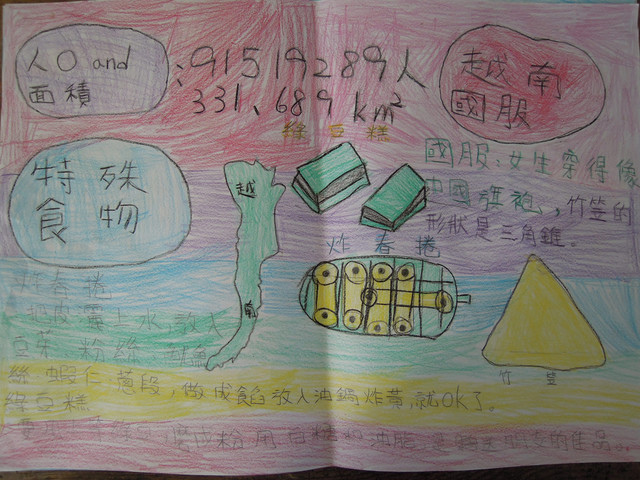 人口 and
面積
:91519289人
331,689 km²
越南
國服
綠豆糕
特殊
食物
越
南
國服:女生穿得像
中國旗袍,竹笠的
形狀是三角錐。
炸春捲
竹笠
炸春捲
皮 上水,放入
豆芽 粉絲
絲 蝦仁 蔥段,做成餡放入油鍋炸黃,就OK了。
綠豆糕
成粉用白糖 油脂 的佳品。